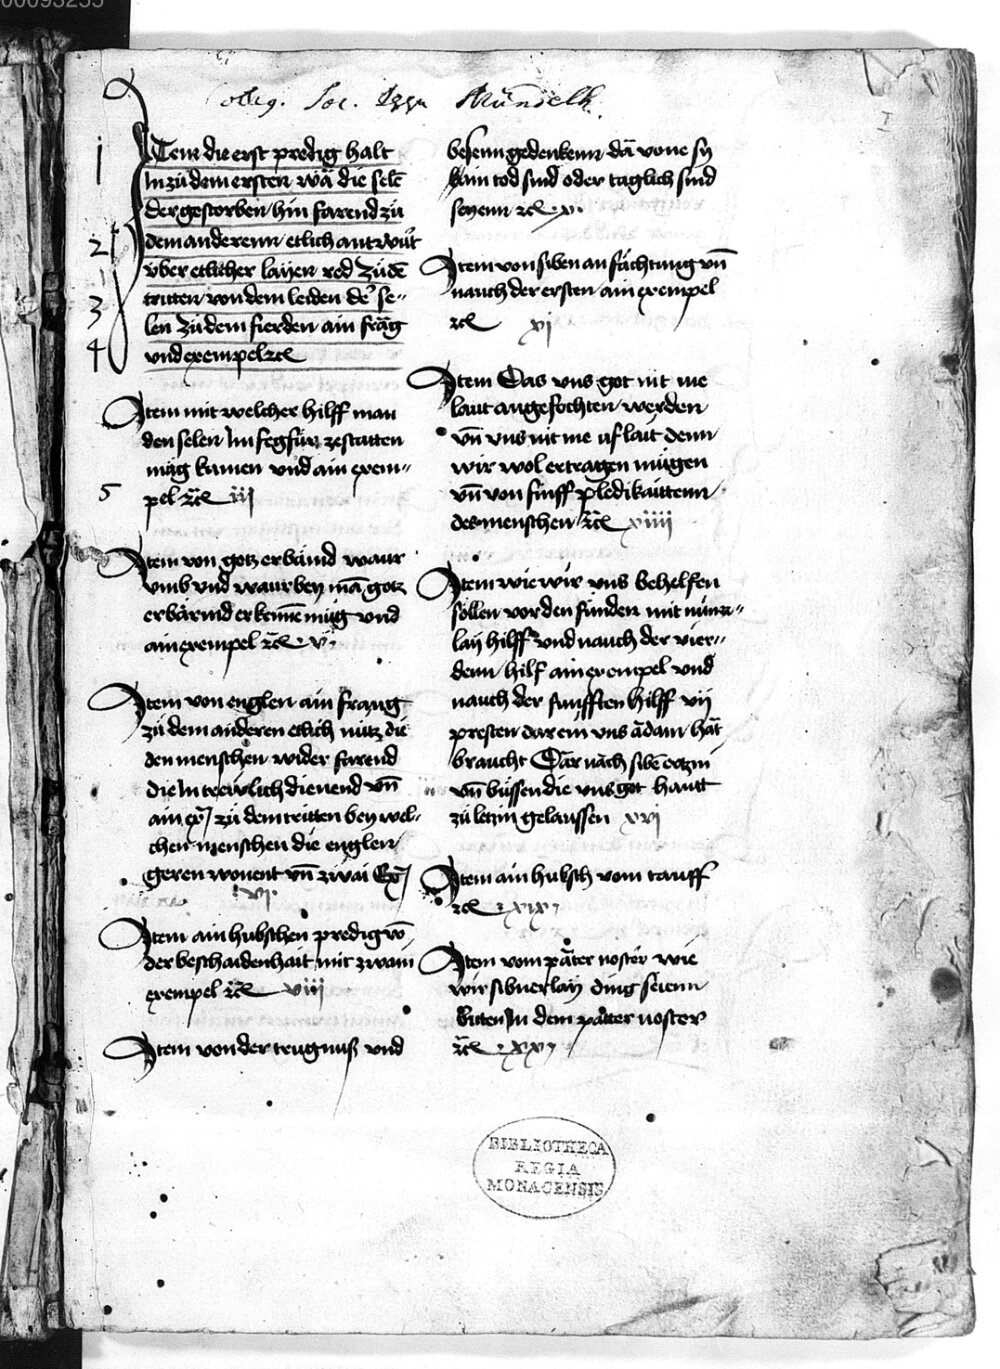 00093255
Colleg. Soc. Jesu Mündelh.
I
1
Item die erst predig halt
In zů dem ersten wa die sele
der gestorben hin farend zů
2
dem anderenn etlich antwurt
vber etlicher layen red zů dē
3
tritten von dem leiden der se„
len zů dem fierden ain frāg
4
vnd exempel rcͣ
Item mit welcher hilff man
den selen Im fegfür zestatten
mug kumen vnd ain exem„
5
pel rcͣ iii
Item von gotz erbärmd waur
vmb vnd waurbey mā gotz
erbärmd erkennē mug vnd
ain exempel rcͣ v
Item von englen ain fraug
zů dem anderen etlich nütz die
den menschen wider farend
die In trewlich dienend vn̄
ain ex zů dem tritten bey wel„
chen menschen die engler
geren wonent vn̄ zwai Ex
vi
Item ain hubschen predig vō
der beschaidenhait mit zwain
exempel rcͣ viii
Item von der zeugnuß vnd
besenn gedenkenn dā vone sy
kain tod sünd oder täglich sünd
seyenn rcͣ x
Item von siben anfächtung vn̄
nauch der ersten ain exempel
rcͣ xi
Item Das vns got nit me
laut angefochten werden
vn̄ vns nit me uf lait denn
wir wol ertragen mugen
vn̄ von finff predikauttenn
des menschen rcͣ xiiii
Item wie wir vns behelfen
söllen vor den sünden mit nünr„
lay hilff vnd nauch der vier„
denn hilf ain exempel vnd
nauch der funfften hilff vii
presten dar ein vns ādam hāt
braucht Dar nāch sibē ertzni
vn̄ büssen die vns got hautt
zů letzin gelaussen xvi
Item ain hubsch vom tauff
rcͣ xix
Item vom pater noster wie
wir sibnerlay ding seienn
bitten In dem pater noster
rcͣ xx
BIBLIOTHECA
REGIA
MONACENSIS